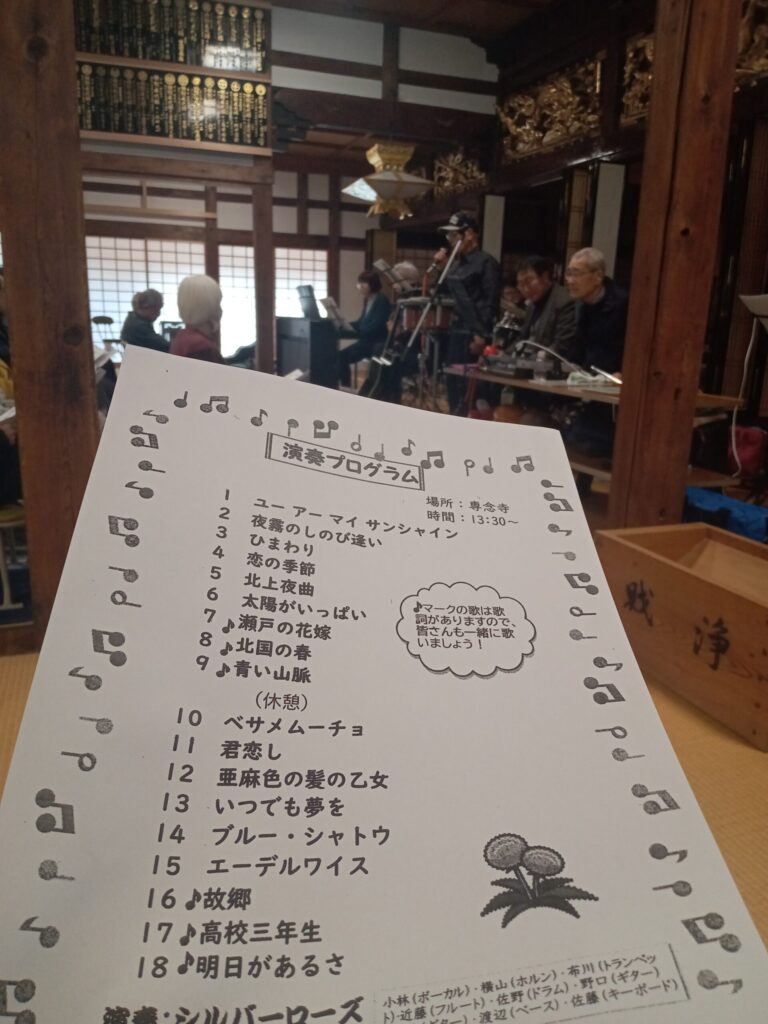 演奏プログラム
場所：専念寺
時間：13:30～
1 ユー アー マイ サンシャイン
2 夜霧のしのび逢い
3 ひまわり
4 恋の季節
5 北上夜曲
6 太陽がいっぱい
7 ♪瀬戸の花嫁
8 ♪北国の春
9 ♪青い山脈
♪マークの歌は歌
詞がありますので、
皆さんも一緒に歌
いましょう！
（休憩）
10 ベサメムーチョ
11 君恋し
12 亜麻色の髪の乙女
13 いつでも夢を
14 ブルー・シャトウ
15 エーデルワイス
16 ♪故郷
17 ♪高校三年生
18 ♪明日があるさ
演奏：シルバーローズ
小林（ボーカル）・横山（ホルン）・布川（トランペッ
ト）・近藤（フルート）・佐野（ドラム）・野口（ギター）
ギター）・渡辺（ベース）・佐藤（キーボード）
浄